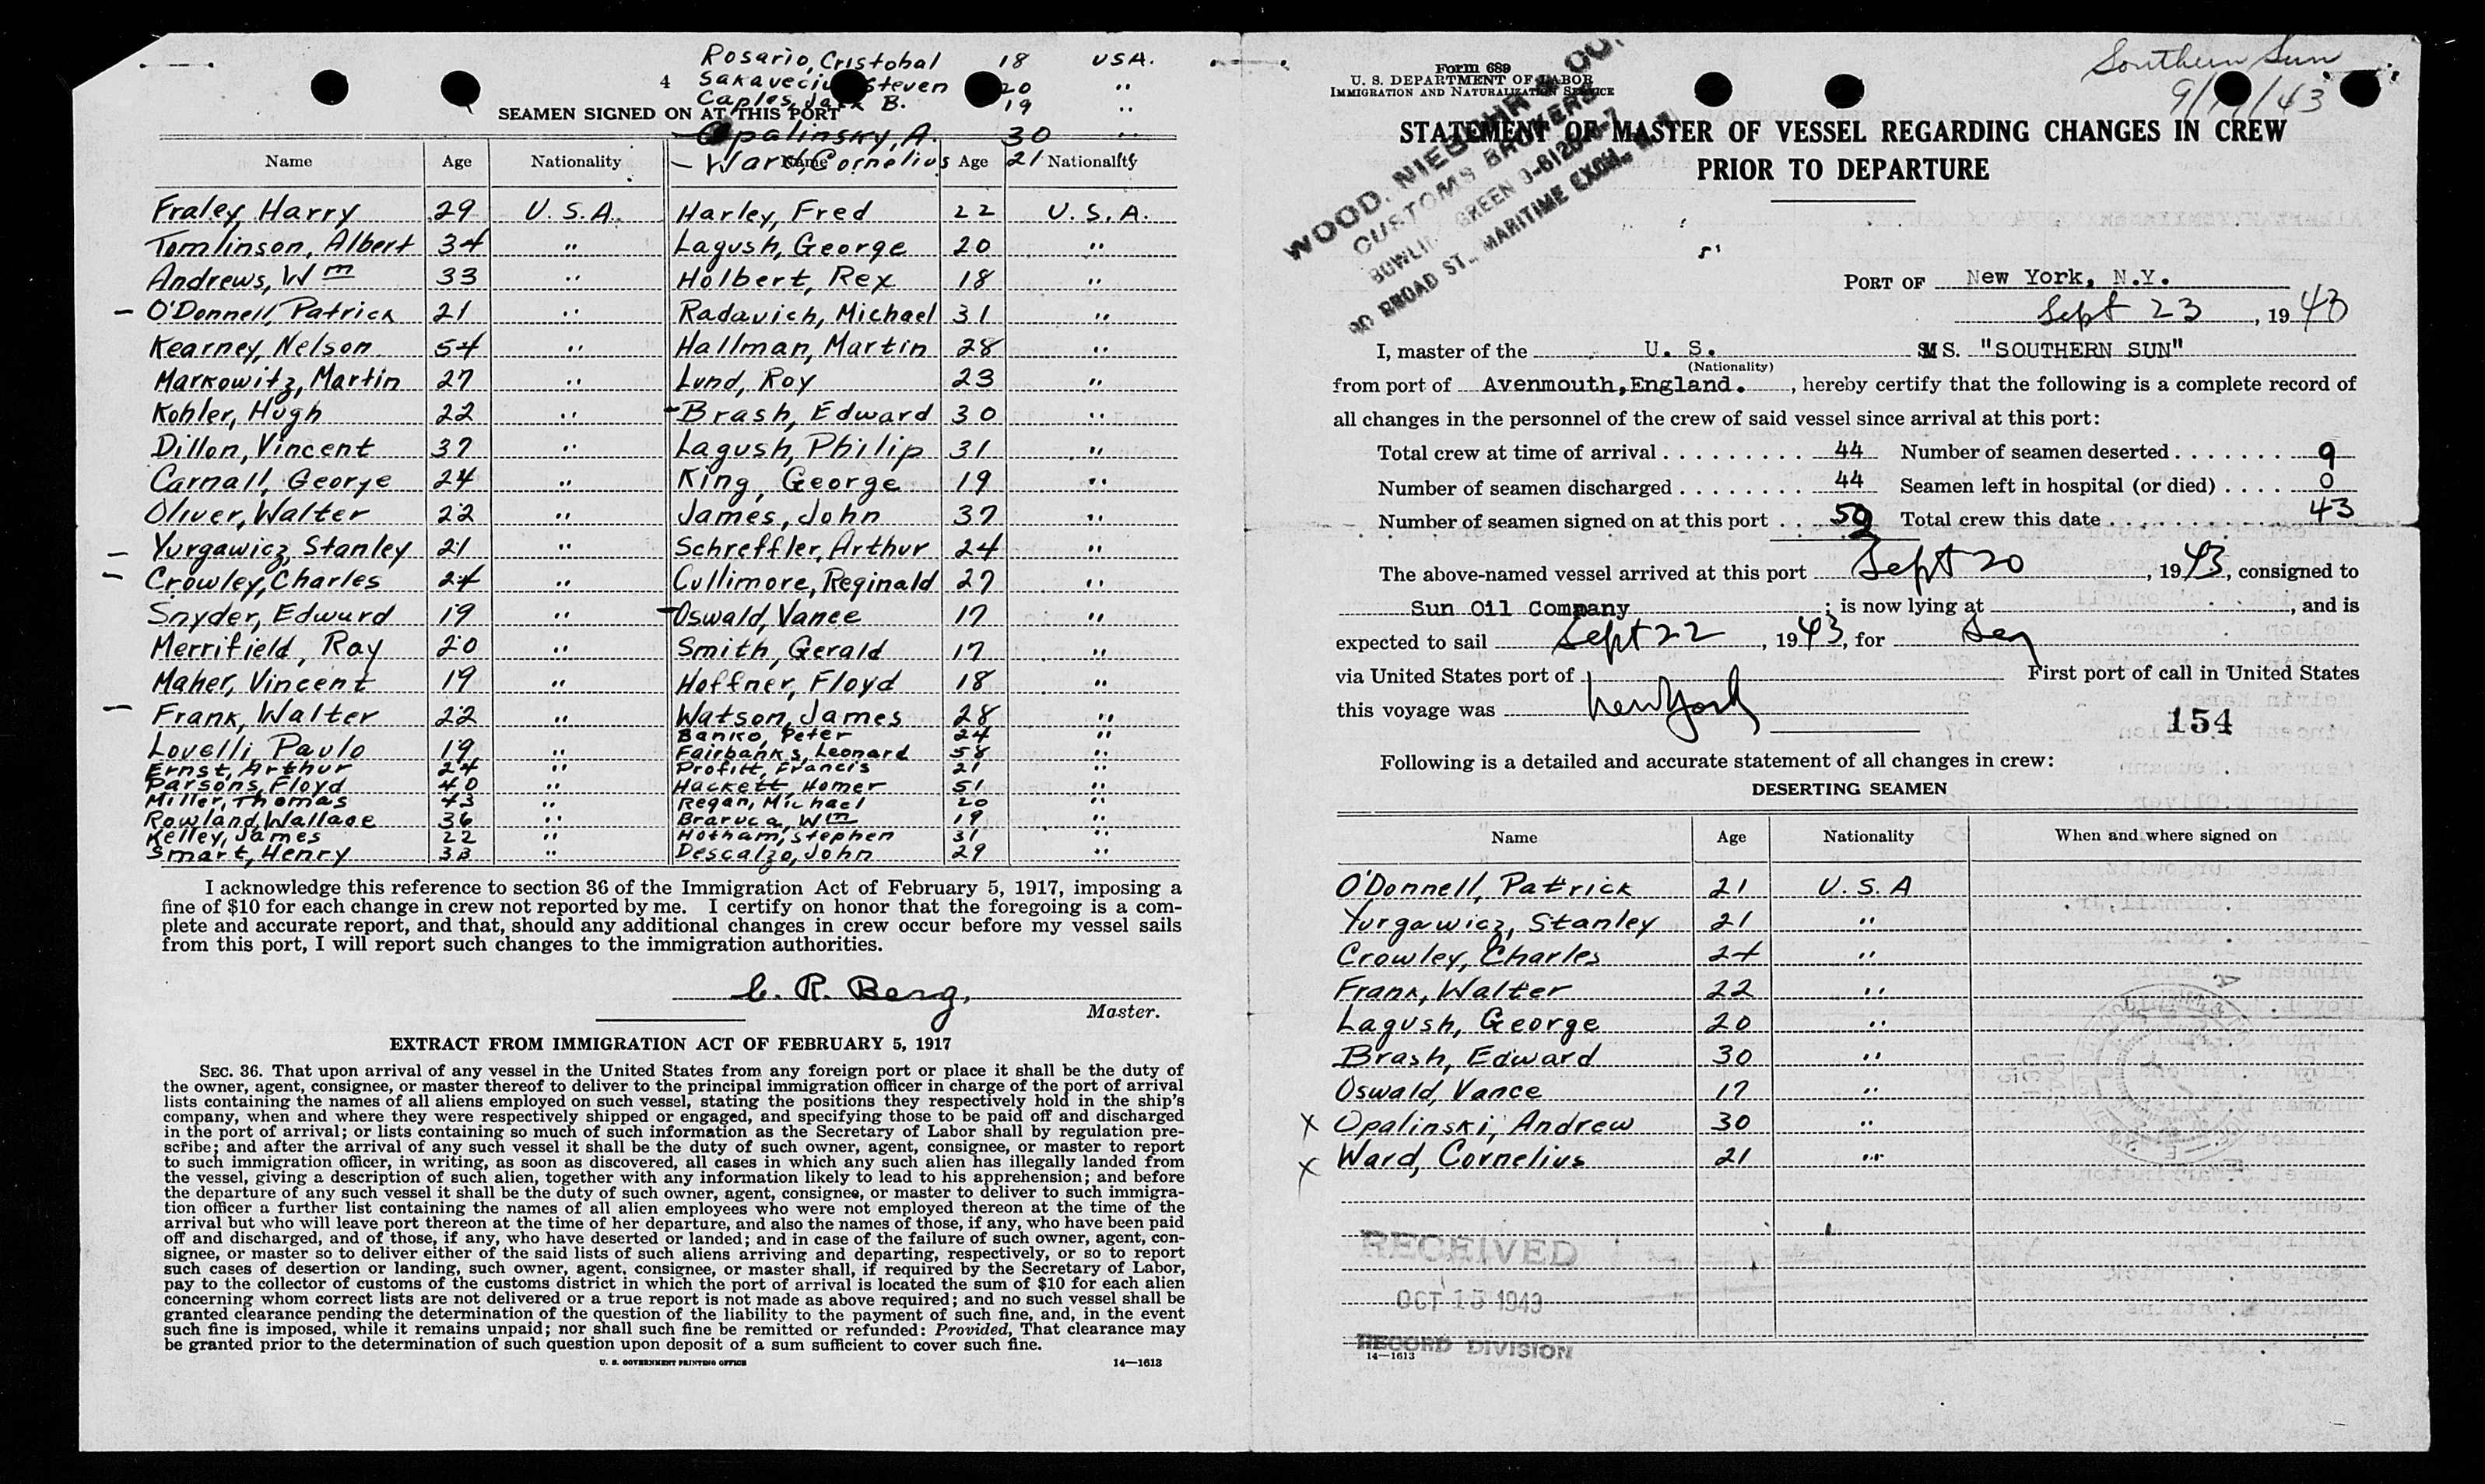 Rosario, Cristobal 18 USA.
4 Sakaveciu Steven 20 "
Caples, Jack B. 19 "
SEAMEN SIGNED ON AT THIS PORT
Opalinsky, A. 30 "
- Ward, Cornelius 21 "
Name Age Nationality Name Age Nationality
Fraley, Harry 29 U.S.A. Harley, Fred 22 U.S.A.
Tomlinson, Albert 34 " Lagush, George 20 "
Andrews, Wm 33 " Holbert, Rex 18 "
- O'Donnell, Patrick 21 " Radavich, Michael 31 "
Kearney, Nelson 54 " Hallman, Martin 28 "
Markowitz, Martin 27 " Lund, Roy 23 "
Kohler, Hugh 22 " - Brash, Edward 30 "
Dillon, Vincent 37 " Lagush, Philip 31 "
Carnall, George 24 " King, George 19 "
Oliver, Walter 22 " James, John 37 "
- Yurgawicz, Stanley 21 " Schreffler, Arthur 24 "
- Crowley, Charles 24 " Cullimore, Reginald 27 "
Snyder, Edward 19 " - Oswald, Vance 17 "
Merrifield, Ray 20 " Smith, Gerald 17 "
Maher, Vincent 19 " Hoffner, Floyd 18 "
- Frank, Walter 22 " Watson, James 28 "
Banko, Peter 24 "
Lovelli, Paulo 19 " Fairbanks, Leonard 58 "
Ernst, Arthur 24 " Profitt, Francis 21 "
Parsons, Floyd 40 " Hackett, Homer 51 "
Miller, Thomas 43 " Regan, Michael 20 "
Rowland, Wallace 36 " Braruca, Wm 19 "
Kelley, James 22 " Hotham, Stephen 31 "
Smart, Henry 33 " Descalzo, John 29 "
I acknowledge this reference to section 36 of the Immigration Act of February 5, 1917, imposing a
fine of $10 for each change in crew not reported by me. I certify on honor that the foregoing is a com-
plete and accurate report, and that, should any additional changes in crew occur before my vessel sails
from this port, I will report such changes to the immigration authorities.
C. R. Berg,
Master.
EXTRACT FROM IMMIGRATION ACT OF FEBRUARY 5, 1917
SEC. 36. That upon arrival of any vessel in the United States from any foreign port or place it shall be the duty of
the owner, agent, consignee, or master thereof to deliver to the principal immigration officer in charge of the port of arrival
lists containing the names of all aliens employed on such vessel, stating the positions they respectively hold in the ship's
company, when and where they were respectively shipped or engaged, and specifying those to be paid off and discharged
in the port of arrival; or lists containing so much of such information as the Secretary of Labor shall by regulation pre-
scribe; and after the arrival of any such vessel it shall be the duty of such owner, agent, consignee, or master to report
to such immigration officer, in writing, as soon as discovered, all cases in which any such alien has illegally landed from
the vessel, giving a description of such alien, together with any information likely to lead to his apprehension; and before
the departure of any such vessel it shall be the duty of such owner, agent, consignee, or master to deliver to such immigra-
tion officer a further list containing the names of all alien employees who were not employed thereon at the time of the
arrival but who will leave port thereon at the time of her departure, and also the names of those, if any, who have been paid
off and discharged, and of those, if any, who have deserted or landed; and in case of the failure of such owner, agent, con-
signee, or master so to deliver either of the said lists of such aliens arriving and departing, respectively, or so to report
such cases of desertion or landing, such owner, agent, consignee, or master shall, if required by the Secretary of Labor,
pay to the collector of customs of the customs district in which the port of arrival is located the sum of $10 for each alien
concerning whom correct lists are not delivered or a true report is not made as above required; and no such vessel shall be
granted clearance pending the determination of the question of the liability to the payment of such fine, and, in the event
such fine is imposed, while it remains unpaid; nor shall such fine be remitted or refunded: Provided, That clearance may
be granted prior to the determination of such question upon deposit of a sum sufficient to cover such fine.
U. S. GOVERNMENT PRINTING OFFICE 14—1613
Southern Sun
9/ /43
Form 689
U. S. DEPARTMENT OF LABOR
IMMIGRATION AND NATURALIZATION SERVICE
WOOD, NIEBUHR &
CUSTOMS BROKERS
BOWLING GREEN
BROAD ST., MARITIME EXCH.
STATEMENT OF MASTER OF VESSEL REGARDING CHANGES IN CREW
PRIOR TO DEPARTURE
PORT OF New York, N.Y.
Sept 23, 1943
I, master of the U. S. MS. "SOUTHERN SUN"
(Nationality)
from port of Avenmouth, England., hereby certify that the following is a complete record of
all changes in the personnel of the crew of said vessel since arrival at this port:
Total crew at time of arrival . . . . . . . . . 44 Number of seamen deserted . . . . . . . 9
Number of seamen discharged . . . . . . . 44 Seamen left in hospital (or died) . . . . 0
Number of seamen signed on at this port . . 52 Total crew this date . . . . . . . . . . . 43
The above-named vessel arrived at this port Sept 20, 1943, consigned to
Sun Oil Company; is now lying at , and is
expected to sail Sept 22, 1943, for Sea
via United States port of First port of call in United States
this voyage was New York
154
Following is a detailed and accurate statement of all changes in crew:
DESERTING SEAMEN
Name Age Nationality When and where signed on
O'Donnell, Patrick 21 U.S.A
Yurgawicz, Stanley 21 "
Crowley, Charles 24 "
Frank, Walter 22 "
Lagush, George 20 "
Brash, Edward 30 "
Oswald, Vance 17 "
x Opalinski, Andrew 30 "
x Ward, Cornelius 21 "
RECEIVED
OCT 15 1943
RECORD DIVISION
14—1613